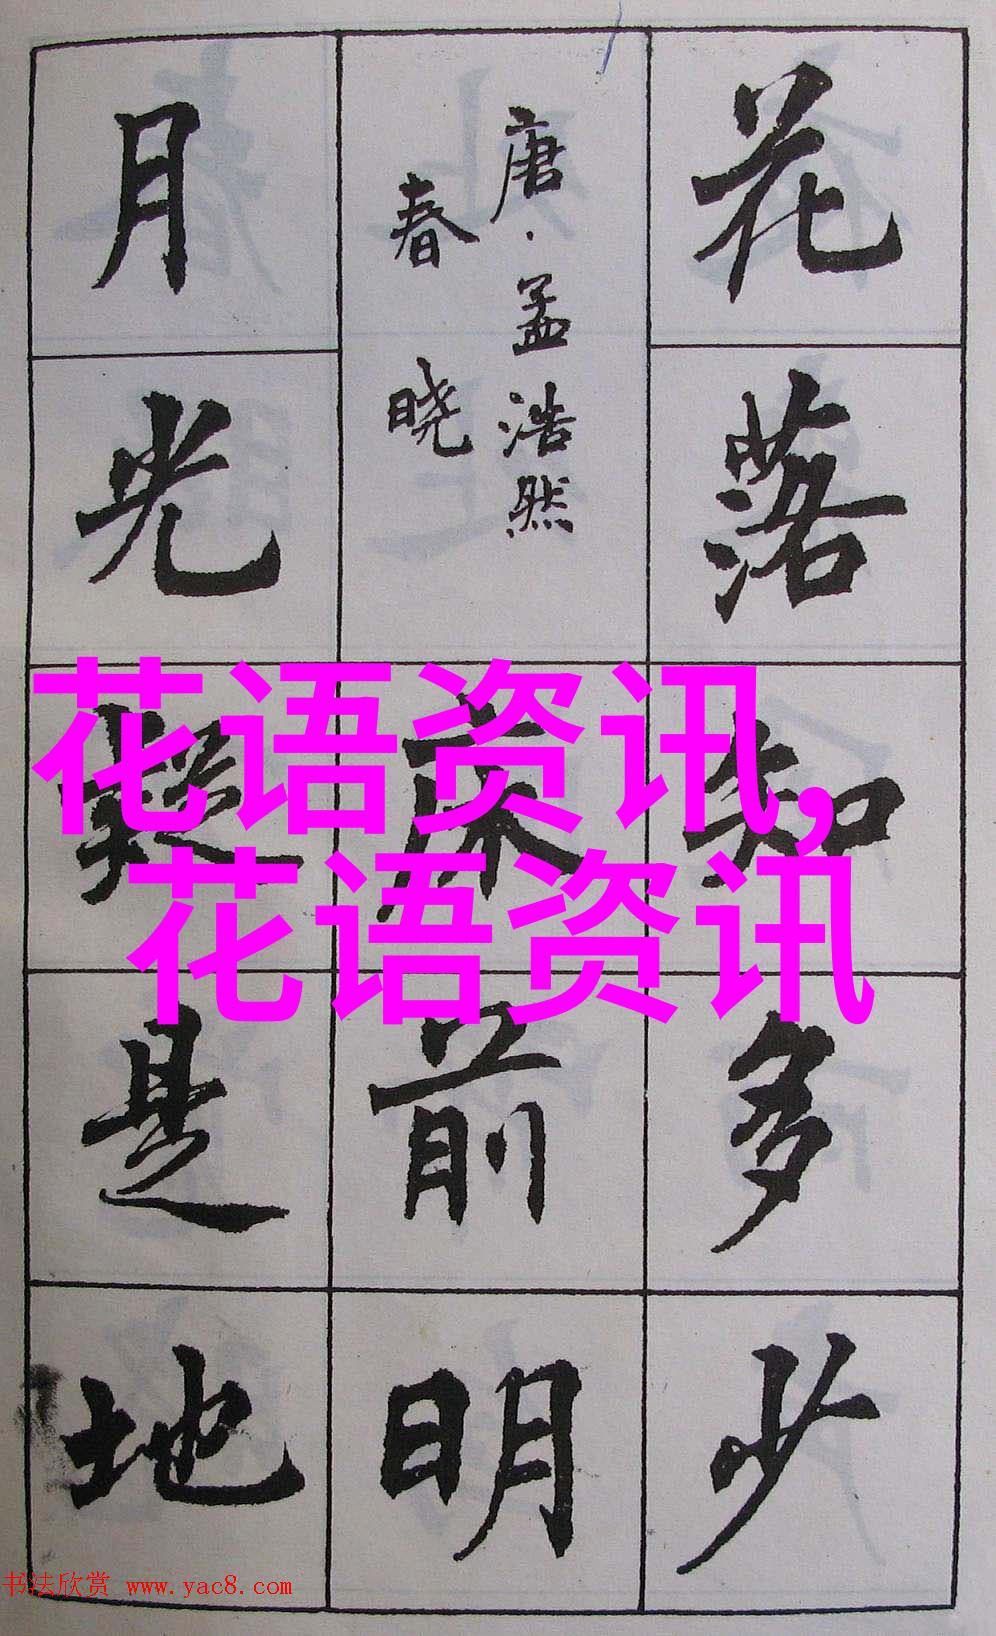 花落知多少
唐·孟浩然
春晓
床前明
月光疑是地
花语资讯,
花语资讯
书法欣赏 www.yac8.com